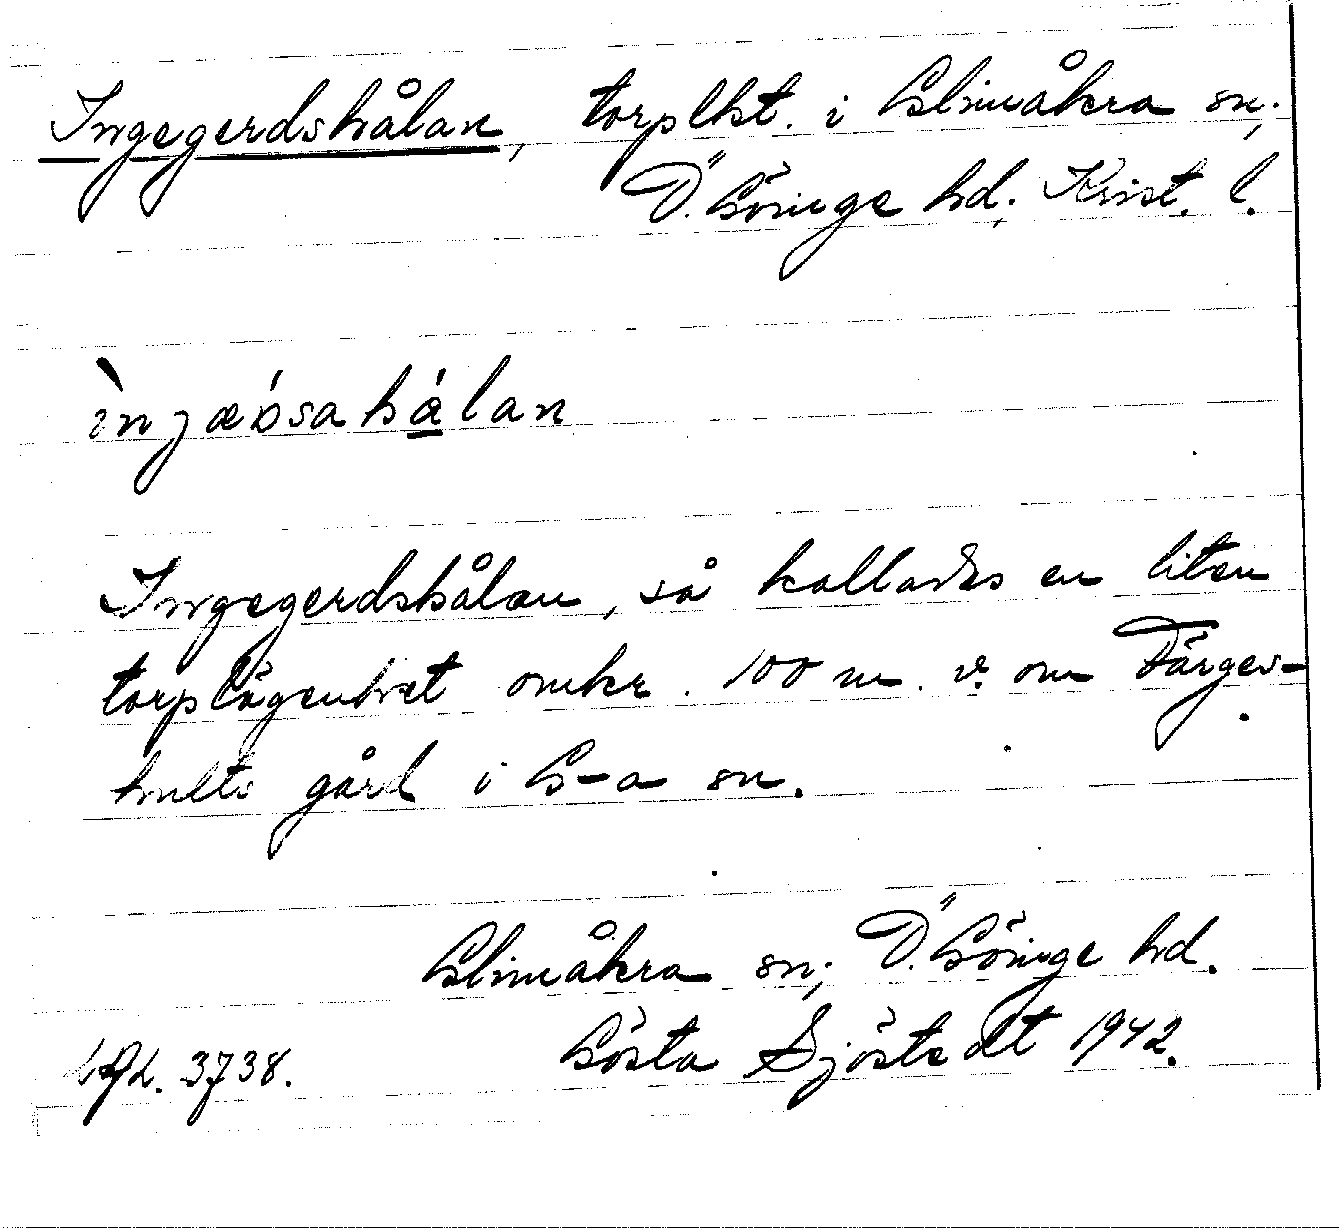 Ingegerdshålan, torplht. i Glimåkra sn;
Ö. Göinge hd; Krist. l.
ìnjæɒ́sahá̱lan
Ingegerdshålan, så kallades en liten
torplägenhet omkr. 100 m. v. om Färges-
hults gård i G-a sn.
Glimåkra sn; Ö. Göinge hd.
Gösta Sjöstedt 1942.
3738.